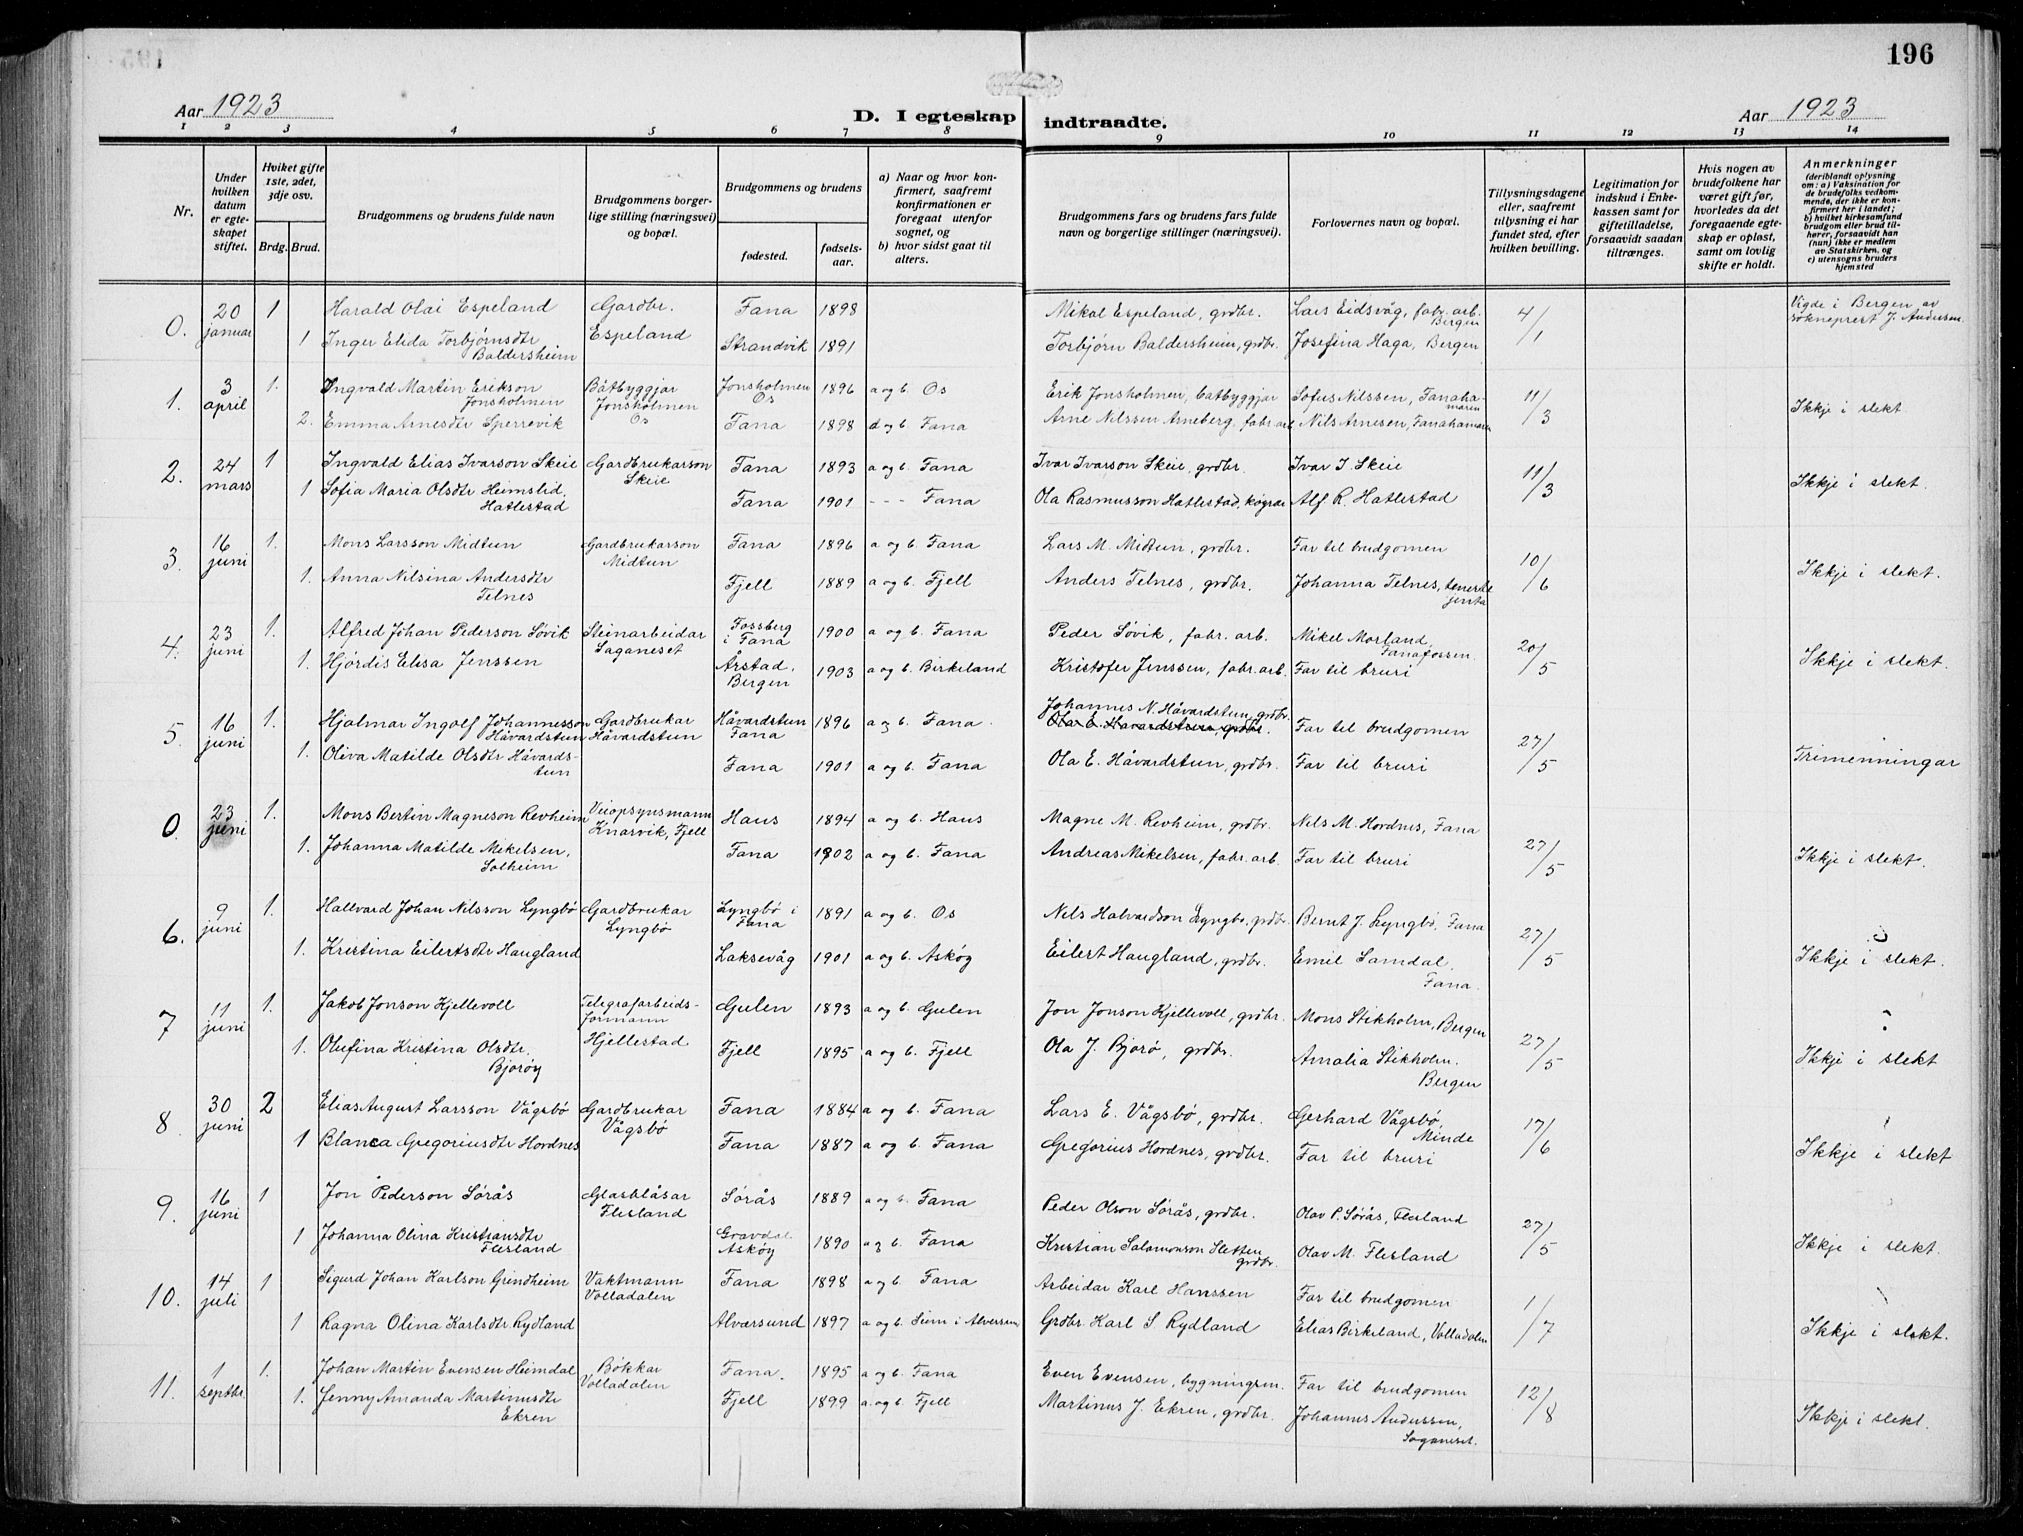 196
Aar 1923
D. I egteskap indtraadte.
Aar 1923
1 2 3 4 5 6 7 8 9 10 11 12 13 14
Nr.
Under hvilken datum er egteskapet stiftet.
Hviket gifte 1ste, 2det, 3dje osv.
Brdg. Brud.
Brudgommens og brudens fulde navn
Brudgommens borgerlige stilling (næringsvei) og bopæl.
Brudgommens og brudens
fødested. fødselsaar.
a) Naar og hvor konfirmert, saafremt konfirmationen er foregaat utenfor sognet, og
b) hvor sidst gaat til alters.
Brudgommens fars og brudens fars fulde navn og borgerlige stillinger (næringsvei).
Forlovernes navn og bopæl.
Tillysningsdagene eller, saafremt tillysning ei har fundet sted, efter hvilken bevilling.
Legitimation for indskud i Enkekassen samt for giftetilladelse, forsaavidt saadan tiltrænges.
Hvis nogen av brudefolkene har været gift før, hvorledes da det foregaaende egteskap er opløst, samt om lovlig skifte er holdt.
Anmerkninger (deriblandt oplysning om: a) Vaksination for de brudefolks vedkommende, der ikke er konfirmert her i landet; b) hvilket kirkesamfund brudgom eller brud tilhører, forsaavidt han (hun) ikke er medlem av Statskirken. og c) utensogns bruders hjemsted
0. 20 januar 1 Harald Olai Espeland Gardbr. Espeland Fana 1898 Mikal Espeland, grdbr. Lars Eidsvåg, fabr. arb. Bergen 4/1 Vigde i Bergen av sokneprest J. Andersen
1 Inger Elida Torbjørnsdtr Baldersheim Strandvik 1891 Torbjörn Baldersheim, grdbr. Josefina Haga, Bergen
1. 3 april 1. Ingvald Martin Erikson Jonsholmen Båtbyggjar Jonsholmen Os Jonsholmen Os 1896 a og b. Os Erik Jonsholmen, batbyggjar Sofus Nilssen, Fanahamaren 11/3 Ikkje i slekt
2. Emma Arnesdtr Sperrevik Fana 1898 d og b Fana Arne Nilssen Arneberg, fabr. arb Nils Arnesen, Fanahamaren
2. 24 mars 1 Ingvald Elias Ivarson Skeie Gardbrukarson Skeie Fana 1893 a og b. Fana Ivar Ivarson Skeie, grdbr. Ivar I. Skeie 11/3 Ikkje i slekt.
1 Sofia Maria Olsdtr Heimslid, Hatlestad Fana 1901 - - - Fana Ola Rasmusson Hatlestad, Alf R. Hatlestad
3. 16 juni 1. Mons Larsson Midtun Gardbrukarson Midtun Fana 1896 a og b. Fana Lars M. Midtun, grdbr. Far til brudgomen 10/6 Ikkje i slekt.
1. Anna Nilsina Andersdtr Telnes Fjell 1889 a og b. Fjell Anders Telnes, grdbr. Johanna Telnes, tenestejenta
4. 23 juni 1. Alfred Johan Pederson Søvik Steinarbeidar Saganeset Fossberg i Fana 1900 a og b. Fana Peder Søvik, fabr. arb. Mikel Morland Fanafossen. 20/5 Ikkje i slekt.
1. Hjördis Elisa Jenssen Årstad, Bergen 1903 a og b. Birkeland Kristofer Jenssen, fabr. arb. Far til bruri
5. 16 juni 1. Hjalmar Ingolf Johannesson Håvardstun Gardbrukar Håvardstun Håvardstun Fana 1896 a og b. Fana Johannes N. Håvardstun, grdbr. Ola E. Håvardstun, grdbr. Far til brudgomen 27/5 Trimenningar
1. Oliva Matilde Olsdtr Håvardstun Fana 1901 a og b. Fana Ola E. Håvardstun, grdbr. Far til bruri
0. 23 juni 1. Mons Bertin Magneson Revheim Veiopsynsmann Knarvik, Fjell Haus 1894 a og b. Haus Magne M. Revheim, grdbr. Nils M. Hordnes, Fana 27/5 Ikkje i slekt.
1. Johanna Matilde Mikelsen, Solheim Fana 1902 a og b. Fana Andreas Mikelsen, fabr. arb. Far til bruri
6. 9 juni 1. Hallvard Johan Nilsson Lyngbö Gardbrukar Lyngbö Lyngbö i Fana 1891 a og b. Os Nils Halvardson Lyngbö, grdbr. Bernt J. Lyngbö, Fana 27/5 Ikkje i slekt.
1. Kristina Eilertsdtr Haugland Laksevåg 1901 a og b. Askög Eilert Haugland, grdbr. Emil Samdal, Fana.
7 11 juni 1. Jakob Jonson Kjellevoll Telegrafarbeidsformann Hjellestad Gulen 1893 a og b. Gulen Jon Jonson Kjellevoll, grdbr. Mons Stikholm, Bergen 27/5 Ikkje i slekt
1. Olufina Kristina Olsdtr. Bjoröy Fjell 1895 a og b. Fjell Ola J. Bjorö, grdbr. Amalia Stikholm. Bergen
8. 30 juni 2 Elias August Larsson Vågsbö Gardbrukar Vågsbö Fana 1884 a og b. Fana Lars E. Vågsbö, grdbr. Gerhard Vågsbö, Minde 17/6 Ikkje i slekt
1 Blanca Gregoriusdtr Hordnes Fana 1887 a og b. Fana Gregorius Hordnes, grdbr. Far til bruri
9. 16 juni 1 Jon Pederson Sørås Glasblåsar Flesland Sørås 1889 a og b. Fana Peder Olson Sørås, grdbr. Olav P. Sørås, Flesland 27/5 Ikkje i slekt.
1 Johanna Olina Kristiansdtr Flesland Gravdal Askøy 1890 a og b. Fana Kristian Salamonson Sletten grdbr. Olav M. Flesland
10. 14 juli 1 Sigurd Johan Karlson Grindheim Vaktmann Volladalen Fana 1898 a og b. Fana Arbeidar Karl Hanssen Far til brudgomen 1/7 Ikkje i slekt.
1 Ragna Olina Karlsdtr Rydland Alversund 1897 a og b. Seim i Alversun Grdbr. Karl S. Rydland Elias Birkeland, Volladalen
11. 1 septbr. 1. Johan Martin Evensen Heimdal Bøkkar Volladalen Fana. 1895 a og b. Fana Even Evensen, bygningsm. Far til brudgomen 12/8 Ikkje i slekt
1. Jenny Amanda Martinusdtr Ekren Fjell 1899 a. og b. Fjell Martinus J. Ekren, grdbr. Johannes Anderssen, Saganeset.